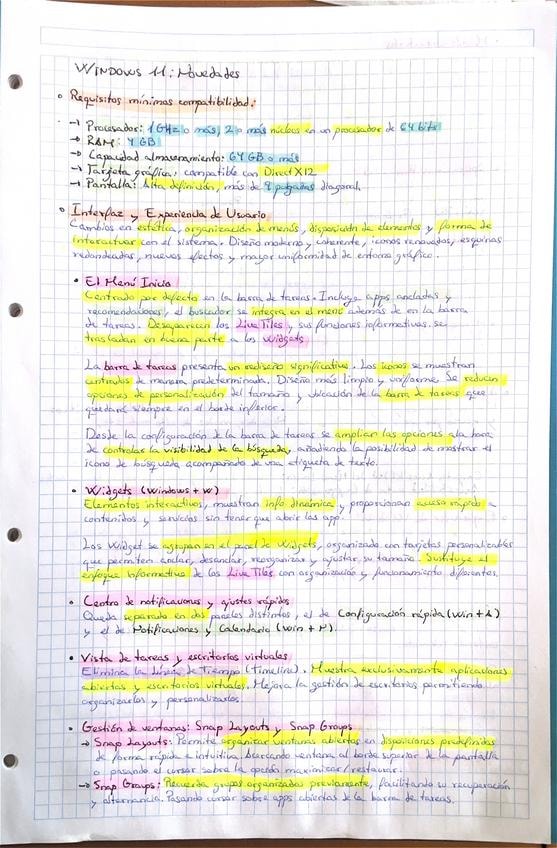 WINDOWS 11: Novedades
Requisitos mínimos compatibilidad:
→ Procesador: 1GHz o más, 2 o más núcleos en un procesador de 64 bits
→ RAM: 4 GB
→ Capacidad almacenamiento: 64 GB o más
→ Tarjeta gráfica: compatible con DirectX12
→ Pantalla: Alta definición, más de 9 pulgadas diagonal
Interfaz y Experiencia de Usuario
Cambios en estética, organización de menús, disposición de elementos y forma de
interactuar con el sistema. Diseño moderno y coherente, iconos renovados, esquinas
redondeadas, nuevos efectos y mayor uniformidad de entorno gráfico.
• El Menú Inicio
Centrado por defecto en la barra de tareas. Incluye apps ancladas y
recomendaciones, el buscador se integra en el menú además de en la barra
de tareas. Desaparecen los Live Tiles y sus funciones informativas se
trasladan en buena parte a los widgets
La barra de tareas presenta un rediseño significativo. Los iconos se muestran
centrados de manera predeterminada. Diseño más limpio y uniforme. Se reducen
opciones de personalización del tamaño y ubicación de la barra de tareas que
quedará siempre en el borde inferior.
Desde la configuración de la barra de tareas se amplian las opciones a la hora
de controlar la visibilidad de la búsqueda, añadiendo la posibilidad de mostrar el
icono de búsqueda acompañado de una etiqueta de texto.
• Widgets (Windows + W)
Elementos interactivos, muestran info dinámica y proporcionan acceso rápido a
contenidos y servicios sin tener que abrir las app.
Los Widget se agrupan en el panel de Widgets, organizado con tarjetas personalizables
que permiten anclar, desanclar, reorganizar y ajustar su tamaño. Sustituye el
enfoque informativo de los Live Tiles con organización y funcionamiento diferentes.
• Centro de notificaciones y ajustes rápidos
Queda separado en dos paneles distintos, el de Configuración rápida (Win + A)
y el de Notificaciones y Calendario (Win + N).
• Vista de tareas y escritorios virtuales
Elimina la Línea de Tiempo (Timeline). Muestra exclusivamente aplicaciones
abiertas y escritorios virtuales. Mejora la gestión de escritorios permitiendo
organizarlos y personalizarlos.
• Gestión de ventanas: Snap Layouts y Snap Groups
→ Snap Layouts: Permite organizar ventanas abiertas en disposiciones predefinidas
de forma rápida e intuitiva. Acercando ventana al borde superior de la pantalla
o pasando el cursor sobre la opción maximizar / restaurar.
→ Snap Groups: Recuerda grupos organizados previamente, facilitando su recuperación
y alternancia. Pasando cursor sobre apps abiertas de la barra de tareas.